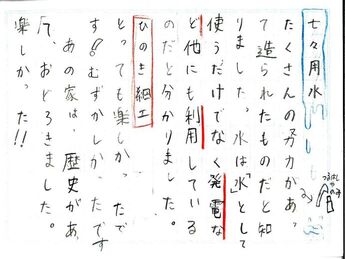 七々用水
たくさんの努力があっ
て造られたものだと知
りました。水は「水」として
使うだけでなく発電な
ど他にも利用している
のだと分かりました。
ひのき細工
とっても楽しかったで
す!!むずかしかったです
あの家は、歴史があ
って、おどろきました。
楽しかった!!
つるはし